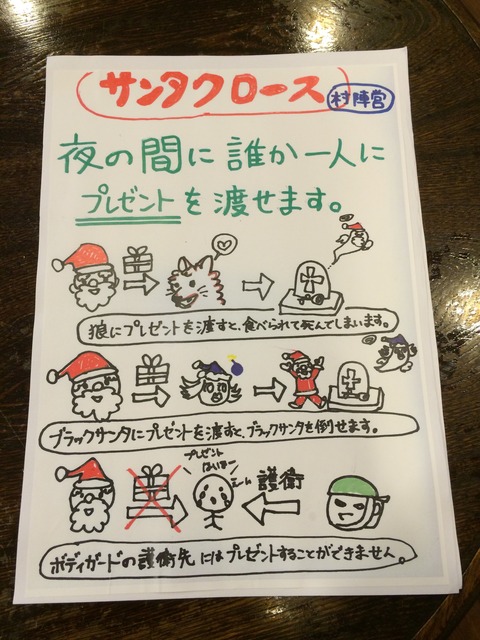 サンタクロース
村陣営
夜の間に誰か一人に
プレゼントを渡せます。
狼にプレゼントを渡すと、食べられて死んでしまいます。
ブラックサンタにプレゼントを渡すと、ブラックサンタを倒せます。
プレゼント
護衛
ボディガードの護衛先にはプレゼントすることができません。